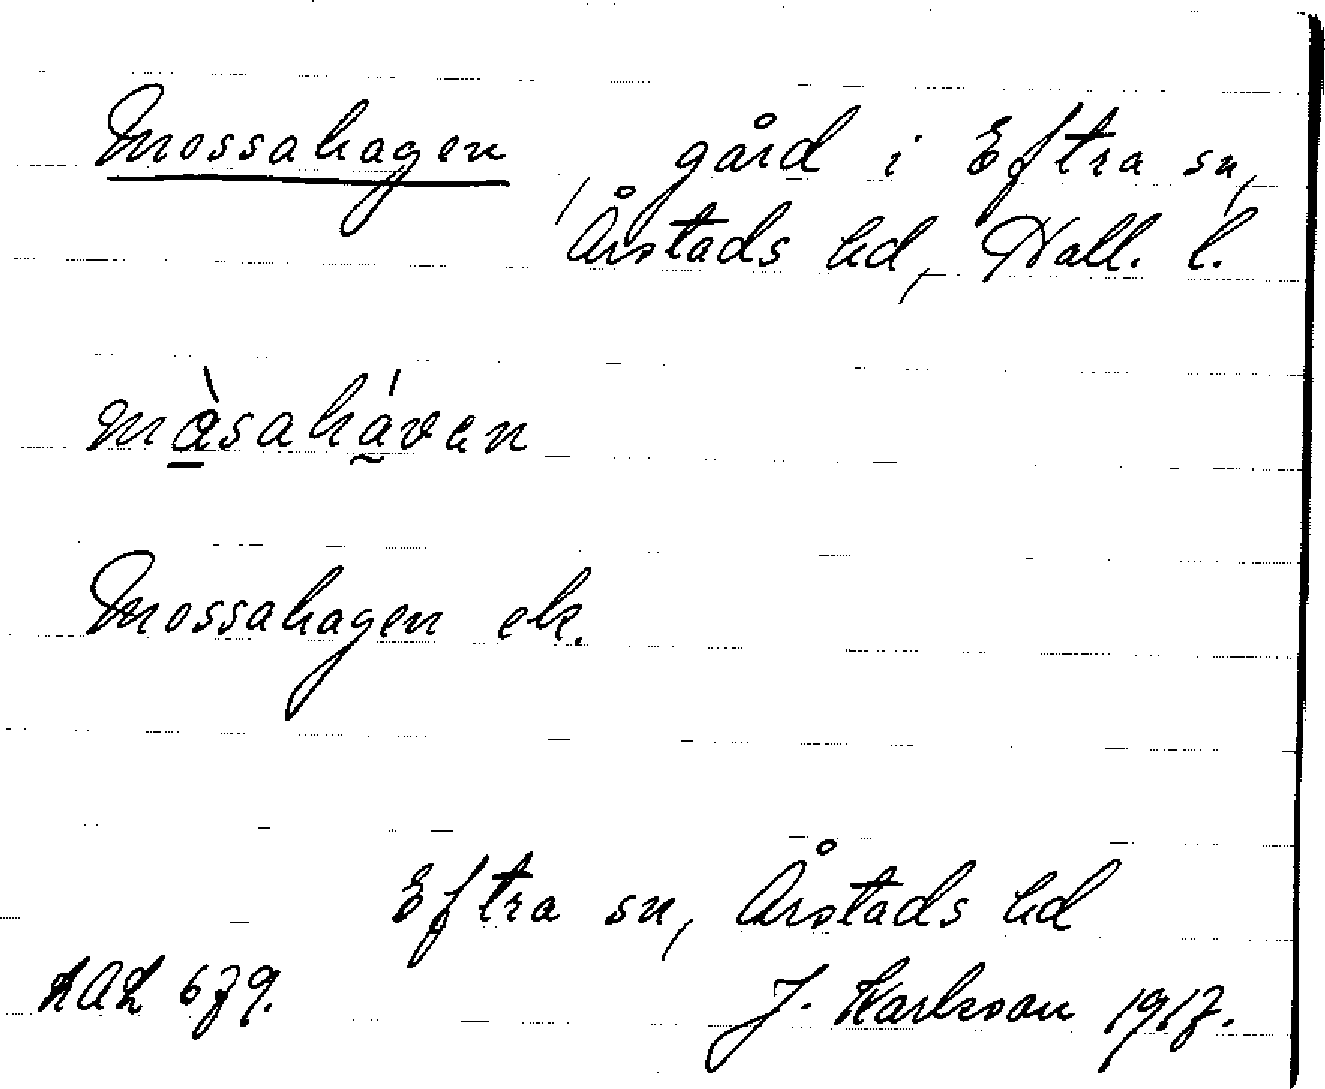 Mossahagen, gård i Eftra sn,
Årstads hd, Hall. l.
màsaháven
Mossahagen ek.
Eftra sn, Årstads hd
LAL 679. J. Karlsson 1917.